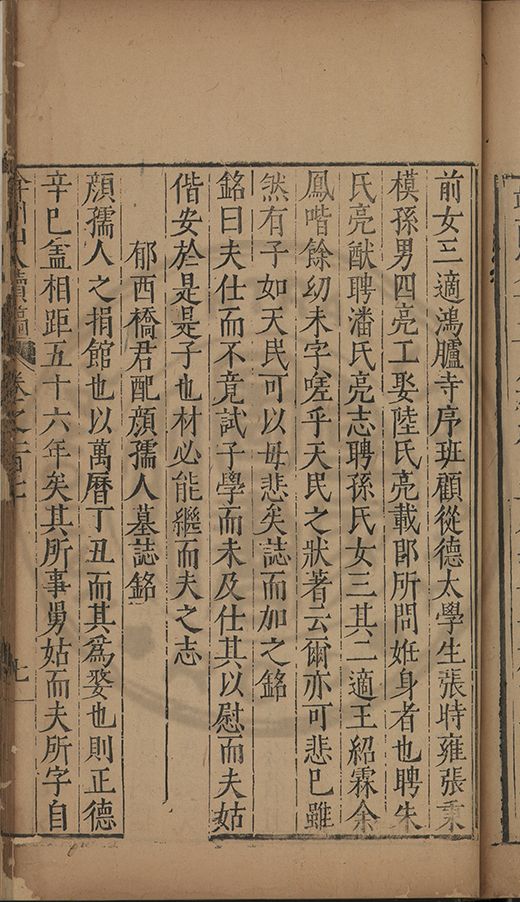 前女三適鴻臚寺序班顧從德太學生張時雍張秉
模孫男四亮工娶陸氏亮載郎所問姙身者也聘朱
氏亮猷聘潘氏亮志聘孫氏女三其二適王紹霖余
鳳喈餘幼未字嗟乎天民之狀著云爾亦可悲巳雖
然有子如天民可以毋悲矣誌而加之銘
銘曰夫仕而不竟試子學而未及仕其以慰而夫姑
偕安於是是子也材必能繼而夫之志
郁西橋君配顏孺人墓誌銘
顏孺人之捐館也以萬曆丁丑而其爲娶也則正德
辛巳盖相距五十六年矣其所事舅姑而夫所字自
弇州山人續稿 卷之一百七 七